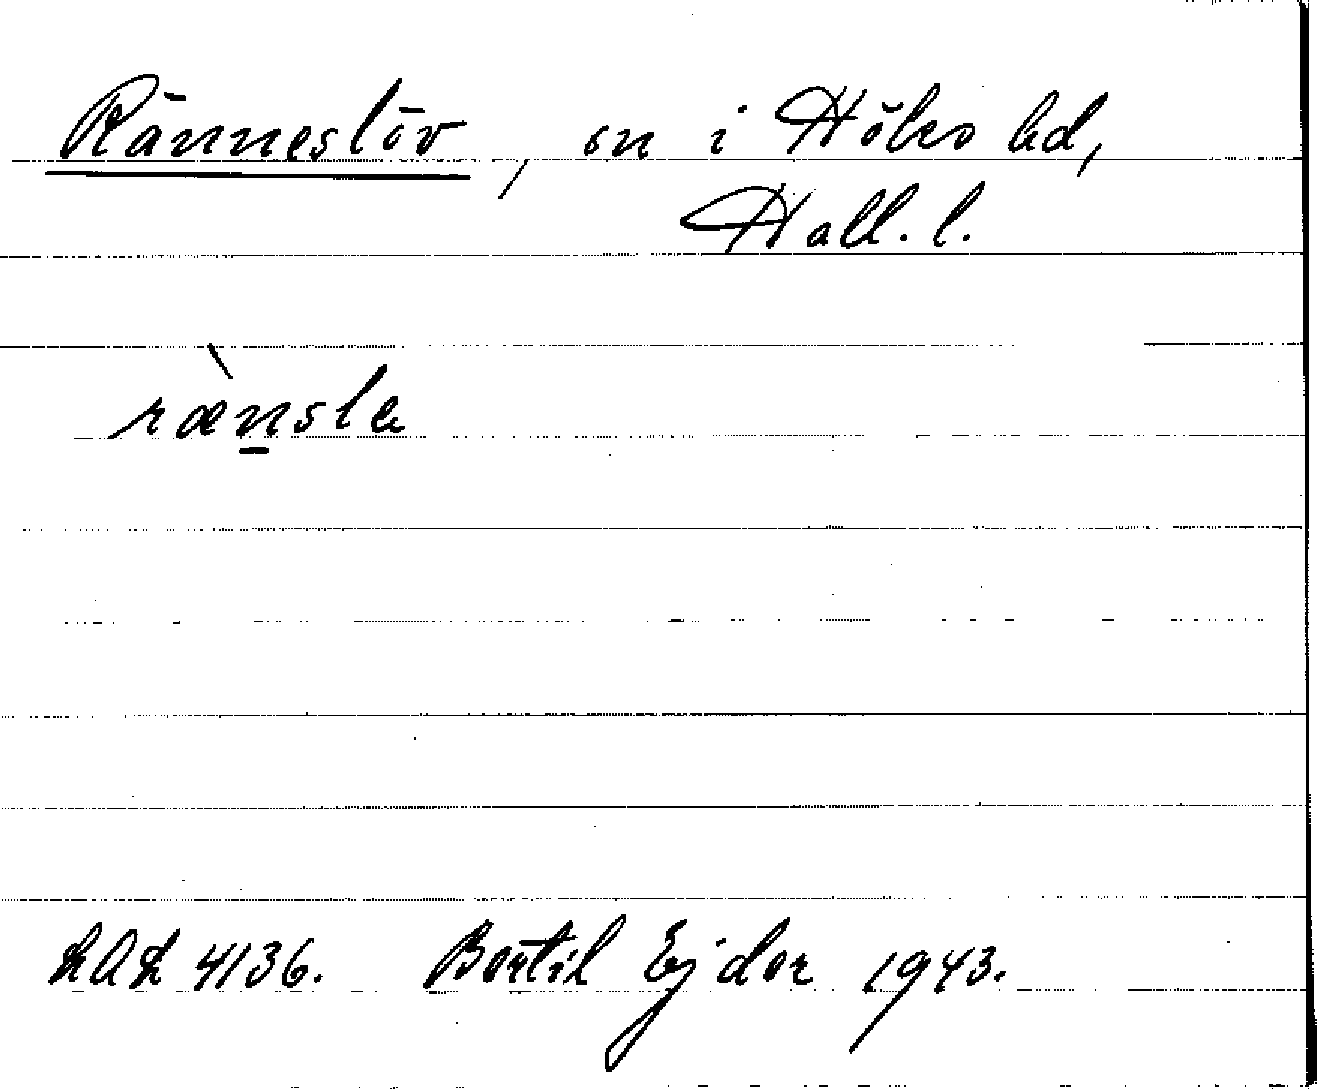 Ränneslöv, sn i Höks hd,
Hall. l.
rænslə
LAL 4136. Bertil Ejder 1943.